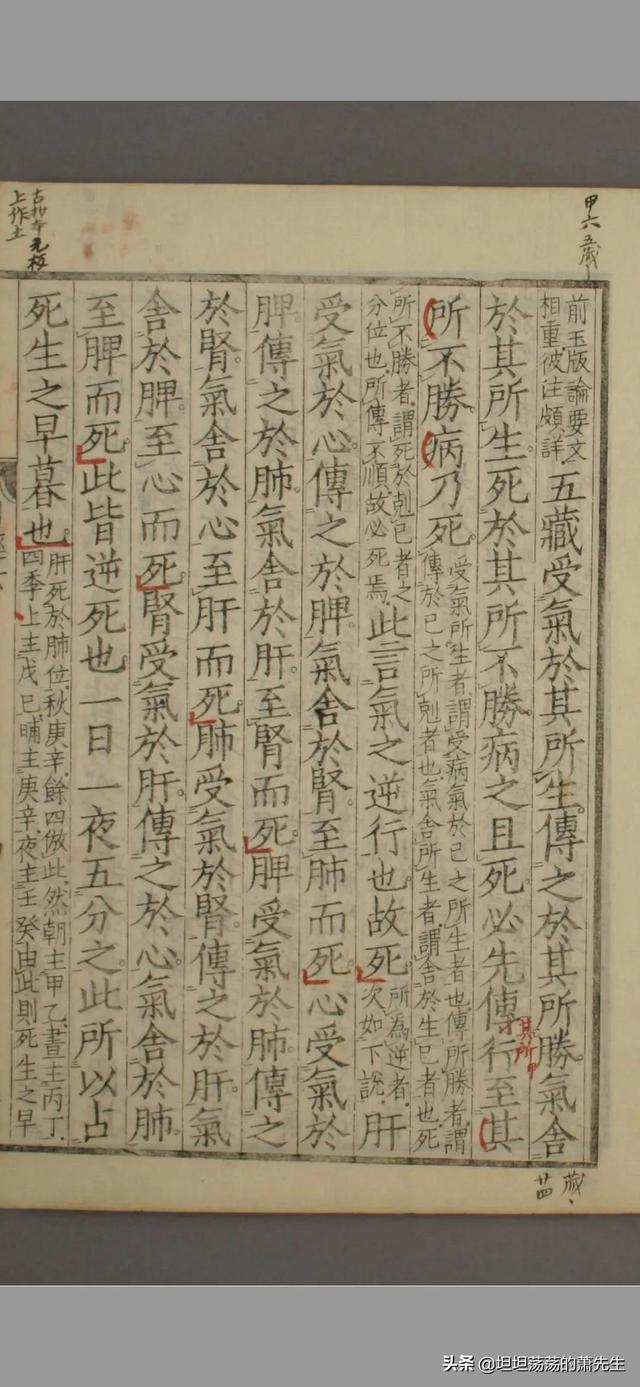 甲六 五藏
前玉版論要文
相重彼注頗詳
五藏受氣於其所生傳之於其所勝氣舍
於其所生死於其所不勝病之且死必先傳行至其
其所
所不勝病乃死
受氣所生者謂受病氣於已之所生者也傳所勝者謂
傳於已之所剋者也氣舍所生者謂舍於生已者也死
所不勝者謂死於剋已者之
分位也所傳不順故必死焉
此言氣之逆行也故死
所為逆者
次如下說
肝
受氣於心傳之於脾氣舍於腎至肺而死心受氣於
脾傳之於肺氣舍於肝至腎而死脾受氣於肺傳之
於腎氣舍於心至肝而死肺受氣於腎傳之於肝氣
舍於脾至心而死腎受氣於肝傳之於心氣舍於肺
至脾而死此皆逆死也一日一夜五分之此所以占
死生之早暮也
肝死於肺位秋庚辛餘四倣此然朝主甲乙晝主丙丁
四季上主戊已晡主庚辛夜主壬癸由此則死生之早
古抄本元板
上作土
藏
廿四
头条 @坦坦荡荡的萧先生